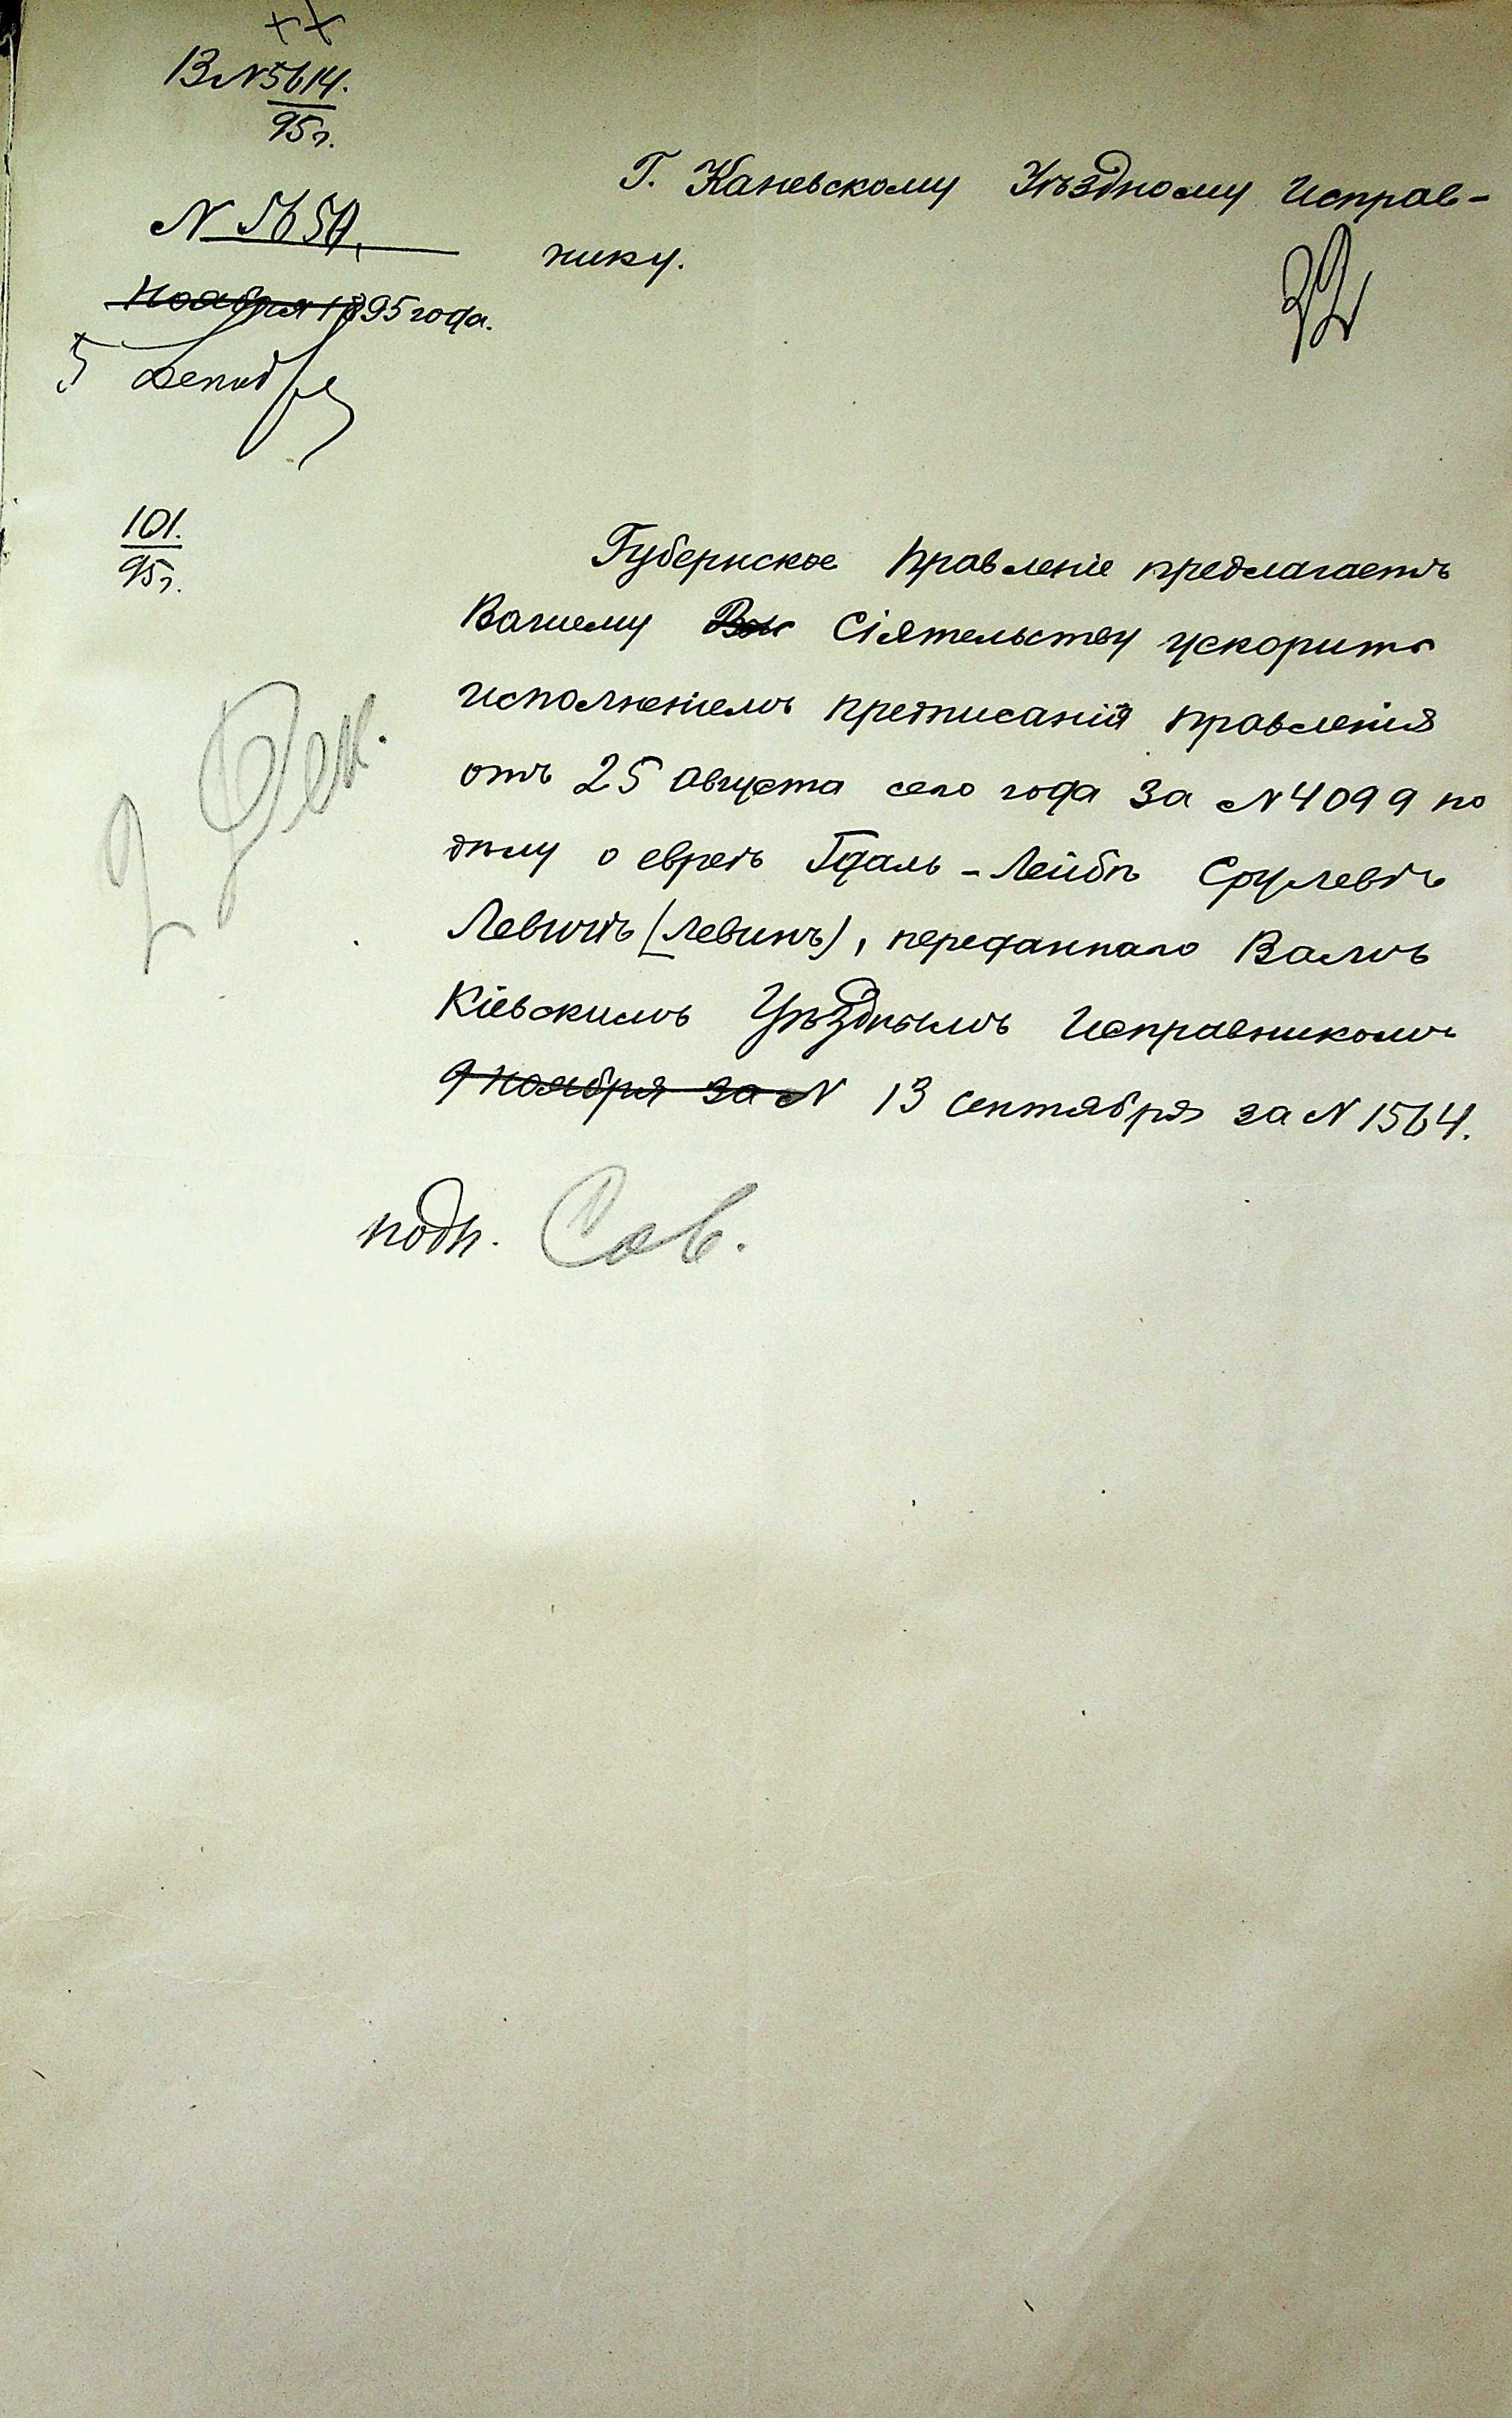 В №5614.
95 г.
№ 5650.
Г. Каневскому Уѣздному Исправ-
нику.
Ноября 1895 года.
5 Декабря
101.
95 г.
Губернское Правленіе предлагаетъ
Вашему Сіятельству ускорить
исполненіемъ предписанія Правленія
отъ 25 Августа сего года за №4099 по
дѣлу о евреѣ Гдаль-Лейбѣ Срулевѣ
Левитѣ (Левинъ), переданнаго Вамъ
Кіевскимъ Уѣзднымъ Исправникомъ
9 Ноября за № 13 сентября за № 1564.
2 Дек.
подп. Сов.